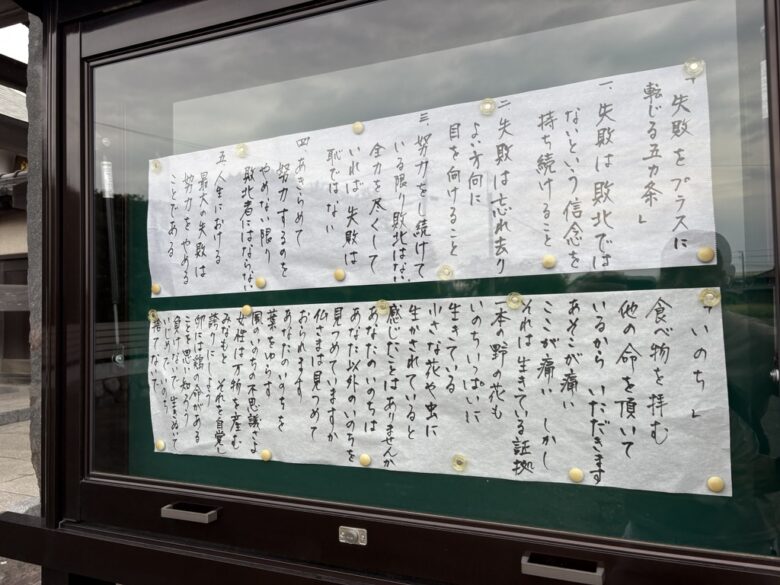 「失敗をプラスに
転じる五カ条」
一、失敗は敗北では
ないという信念を
持ち続けること
二 失敗は忘れ去り
よい方向に
目を向けること
三、努力をし続けて
いる限り敗北はない
全力を尽くして
いれば、失敗は
恥ではない
四 あきらめて
努力するのを
やめない限り
敗北者にはならない
五、人生における
最大の失敗は
努力をやめる
ことである
「いのち」
食べ物を拝む
他の命を頂いて
いるから いただきます
あそこが痛い
ここが痛い しかし
それは生きている証拠
一本の野の花も
いのちいっぱいに
生きている
小さな花や虫に
生かされていると
感じたことはありませんか
あなたのいのちは
あなた以外のいのちを
見つめていますか
仏さまは見つめて
おられます
あなたのいのちを
葉をゆらす
風のいのちの不思議さよ
女性は万物を産む
みなもと それを自覚し
誇りにしよう
卵には鶏の命がある
ことを思い知ろう
負けないで 生きぬいて
捨てないで